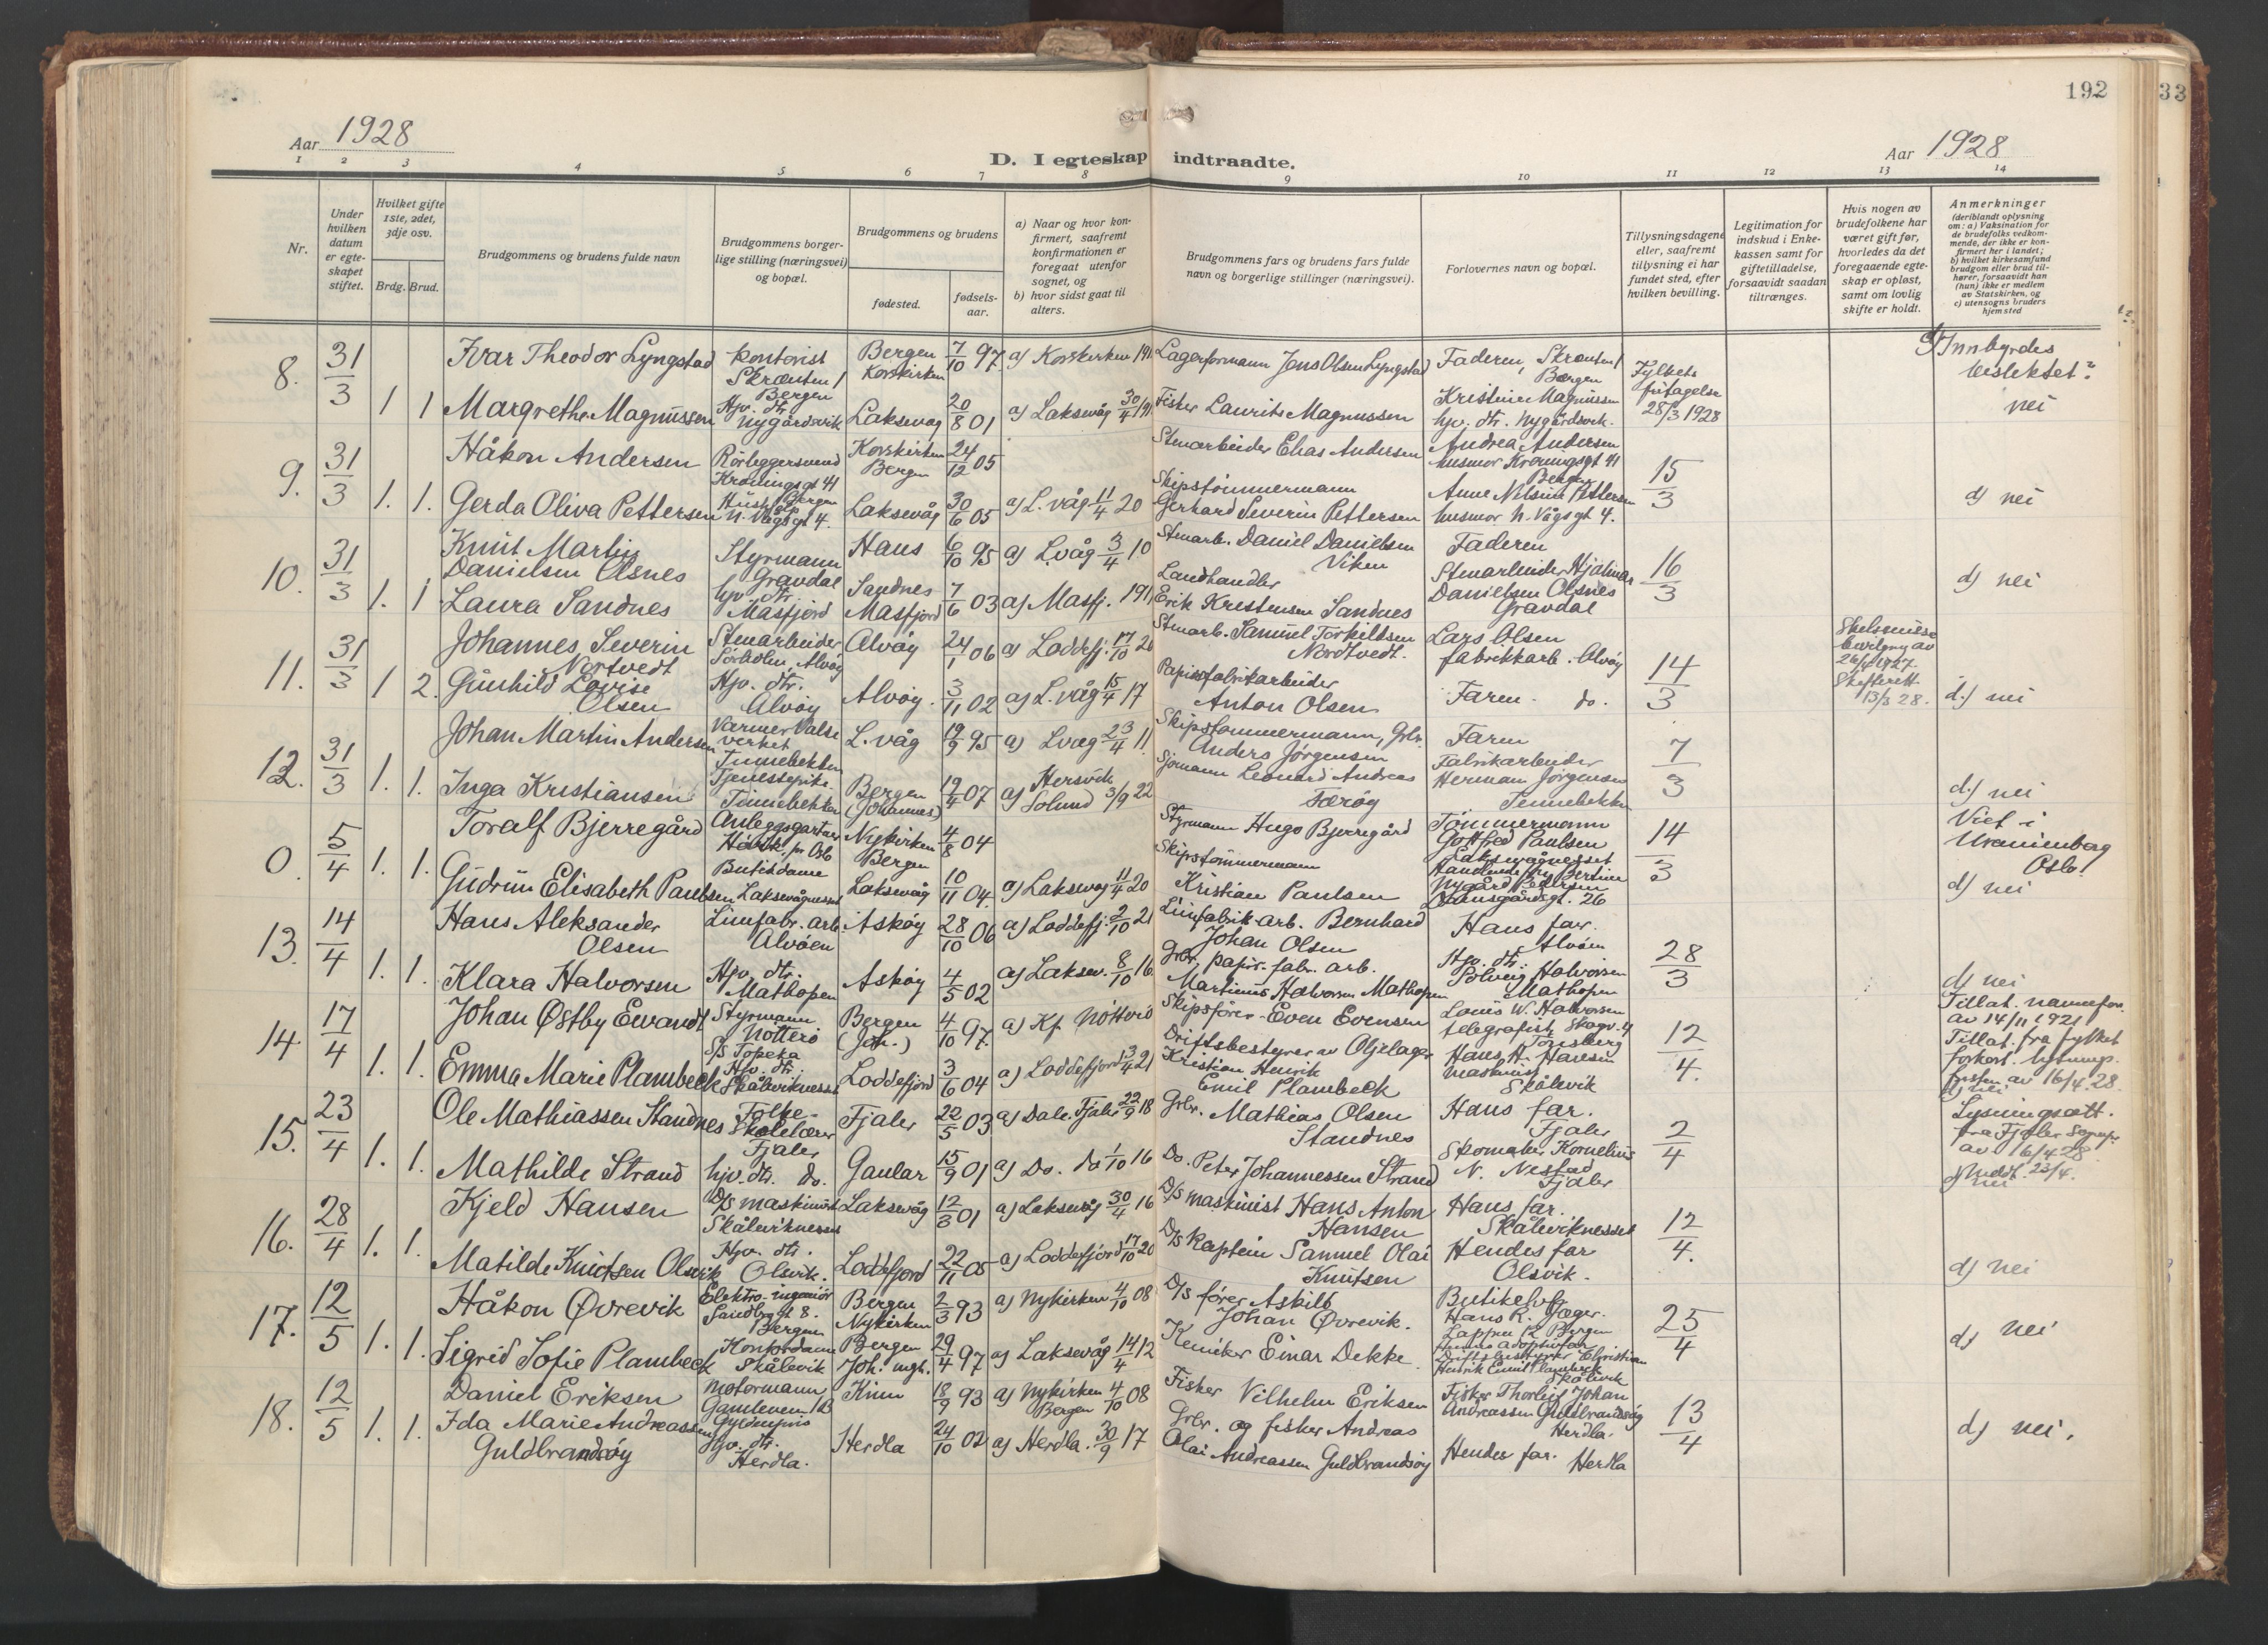 192
33
Aar 1928
D. I egteskap indtraadte.
Aar 1928
1 2 3 4 5 6 7 8 9 10 11 12 13 14
Nr.
Under hvilken datum er egteskapet stiftet.
Hvilket gifte 1ste, 2det, 3dje osv.
Brdg. Brud.
Brudgommens og brudens fulde navn
Brudgommens borgerlige stilling (næringsvei) og bopæl.
Brudgommens og brudens
fødested.
fødselsaar.
a) Naar og hvor konfirmert, saafremt konfirmationen er foregaat utenfor sognet, og
b) hvor sidst gaat til alters.
Brudgommens fars og brudens fars fulde navn og borgerlige stillinger (næringsvei).
Forlovernes navn og bopæl.
Tillysningsdagene eller, saafremt tillysning ei har fundet sted, efter hvilken bevilling.
Legitimation for indskud i Enkekassen samt for giftetilladelse, forsaavidt saadan tiltrænges.
Hvis nogen av brudefolkene har været gift før, hvorledes da det foregaaende egteskap er opløst, samt om lovlig skifte er holdt.
Anmerkninger
(deriblandt oplysning om: a) Vaksination for de brudefolks vedkommende, der ikke er konfirmert her i landet; b) hvilket kirkesamfund brudgom eller brud tilhører, forsaavidt han (hun) ikke er medlem av Statskirken, og c) utensogns bruders hjemsted
8. 31/3 1 1
Ivar Theodor Lyngstad kontorist Skrænten 1 Bergen Bergen Korskirken 7/10 97 a) Korskirken 191 Lagerformann Jens Olsen Lyngstad Faderen, Skrænten 1 Bergen
Margrethe Magnussen Hjv. dtr. Nygårdsvik Laksevåg 20/8 01 a) Laksevåg 30/4 191 Fisker Laurits Magnussen Kristine Magnussen hjv. dtr. Nygårdsvik.
Fylkets fritagelse 28/3 1928
d) Innbyrdes beslektet? nei
9. 31/3 1. 1.
Håkon Andersen Rörleggersvend Kroningsgt 41 Bergen Korskirken Bergen 24/12 05 Stenarbeider Elias Andersen Andrea Andersen husmor Kroningsgt 41 Bergen
Gerda Oliva Pettersen Hushjelp N. Vågsgt 4. Laksevåg 30/6 05 a) L. våg 11/4 20 Skipstömmermann Gerhard Severin Pettersen Anne Nilsine Pettersen husmor N. Vågsgt 4.
15/3
d) nei
10. 31/3 1. 1
Knut Martin Danielsen Olsnes Styrmann Gravdal Haus 6/10 95 a) L.våg 3/4 10 Stenarb. Daniel Danielsen Viken Faderen
Laura Sandnes hjv. dtr. Masfjord Sandnes Masfjord 7/6 03 a) Masfj. 191 Landhandler Erik Kristensen Sandnes Stenarbeider Hjalmar Danielsen Olsnes Gravdal
16/3
d) nei
11. 31/3 1 2.
Johannes Severin Nortvedt Stenarbeider Alvöy Alvöy 24/1 06 a) Loddefj. 17/10 20 Stenarb. Samuel Torkildsen Nordtvedt. Lars Olsen fabrikkarb. Alvöy
Gunhild Lovise Olsen Hjv. dtr. Alvöy Alvöy. 3/11 02 a) L. våg 15/4 17 Papirfabrikarbeider Anton Olsen Faren. do.
14/3
Skilsmisse bevilgn av 1927. Skifterett 13/3 28.
d.) nei
12. 31/3 1. 1.
Johan Martin Andersen Varmer Valseverket Tennebekken L. våg 19/9 95 a) Lvåg 23/4 11. Skipstømmermann, Grbr. Anders Jørgensen Faren
Inga Kristiansen Tjenestepike. Tennebekken Bergen (Johannes) 19/4 07 a) Hersvik Solund 3/9 22 Sjømann Leonard Andreas Færöy Fabrikarbeider Herman Jörgensen Tennebekken
7/3
d.) nei
0. 5/4 1. 1.
Toralf Bjerregård Anleggsgartner Hövik pr Oslo Nykirken Bergen 4/8 04 Styrmann Hugo Bjerregård Tömmermann Gottfred Paulsen Laksevågnesset
Gudrun Elisabeth Paulsen Butikdame Laksevågnesset Laksevåg 10/11 04. a) Laksevåg 11/4 20 Skipstömmermann Kristian Paulsen Bertine Nygård Pedersen Damsgårdsgt. 26
14/3
Viet i Uranienborg Oslo!
d) nei
13. 14/4 1. 1.
Hans Aleksander Olsen Limfabr. arb. Alvöen Askøy 28/10 06 a) Loddefj. 2/10 21 Limfabrik-arb. Bernhard Johan Olsen Hans far. Alvöen
Klara Halvorsen Hjv. dtr. Mathopen Askøy 4/5 02 a) Laksev. 8/10 16. Grbr. papir. fabr. arb. Martinus Halvorsen Mathopen Hjv. dtr. Solveig Halvorsen Mathopen
28/3
d) nei
14. 17/4 1. 1.
Johan Østby Ewandt Styrmann Nötterö S/S Topeka Bergen (Joh.) 4/10 97. a) Kf Nöttrö Skipsfører Even Evensen Louis W. Halvorsen telegrafist, Skagv. 4 Tönsberg
Emma Marie Plambeck Hjv. dtr. Skåleviknesset Loddefjord 3/6 04 a) Loddefjord 3/4 21 Driftsbestyrer av Oljelager Kristian Henrik Emil Plambeck Hans H. Hansen maskinist Skålevik
12/4.
Tillat. navnefor. av 14/11 1921
Tillat. fra fylket forkort. lysnings. fristen av 16/4 28.
d) nei
15. 23/4 1. 1.
Ole Mathiassen Standnes Folkeskolelærer Fjaler Fjaler 22/5 03 a) Dale. Fjaler 22/9 18 Grbr. Mathias Olsen Standnes Hans far. Fjaler
Mathilde Strand hjv. dtr. do. Gaular 15/9 01 a) Do. do 1/10 16 Do. Peter Johannessen Strand Skomaker Kornelius N. Nestad Fjaler
2/4
Lysningsatt. fra Fjaler sognepr av 16/4 28
d) nei
16. 28/4 1. 1.
Kjeld Hansen D/S maskinist Skåleviknesset Laksevåg 12/3 01 a) Laksevåg 30/4 16 D/S maskinist Hans Anton Hansen Hans far. Skåleviknesset
Matilde Knutsen Olsvik Hjv. dtr. Olsvik. Loddefjord 22/11 05 a) Loddefjord 17/10 20 D/S Kaptein Samuel Olai Knutsen Hendes far Olsvik.
12/4.
d) nei
17. 12/5 1. 1.
Håkon Øvrevik Elektro-ingeniör Sandbrgt 8. Bergen Bergen Nykirken 2/3 93 a) Nykirken 4/10 08 D/S fører Askild Johan Øvrevik. Hans R. Jæger. Lappen 12 Bergen
Sigrid Sofie Plambeck Kontordame Skålevik Bergen Joh. mgh. 29/4 97 a) Laksevåg 14/4 12 Kemiker Einar Dekke Hendes adoptivfar Driftsbestyrer Christian Henrik Emil Plambeck Skålevik
25/4
d) nei
18. 12/5 1. 1.
Daniel Eriksen Motormann Kinn 18/9 93 a) Nykirken Bergen 4/10 08 Fisker Vilhelm Eriksen Fisker Thorleif Johan Andreassen Guldbrandsöy Herdla.
Ida Marie Andreassen Guldbrandsöy Hjv. dtr. Herdla. Herdla 24/10 02 a) Herdla. 30/9 17 Grbr. og fisker Andreas Olai Andreassen Guldbrandsöy Hendes far. Herdla
13/4
d) nei.